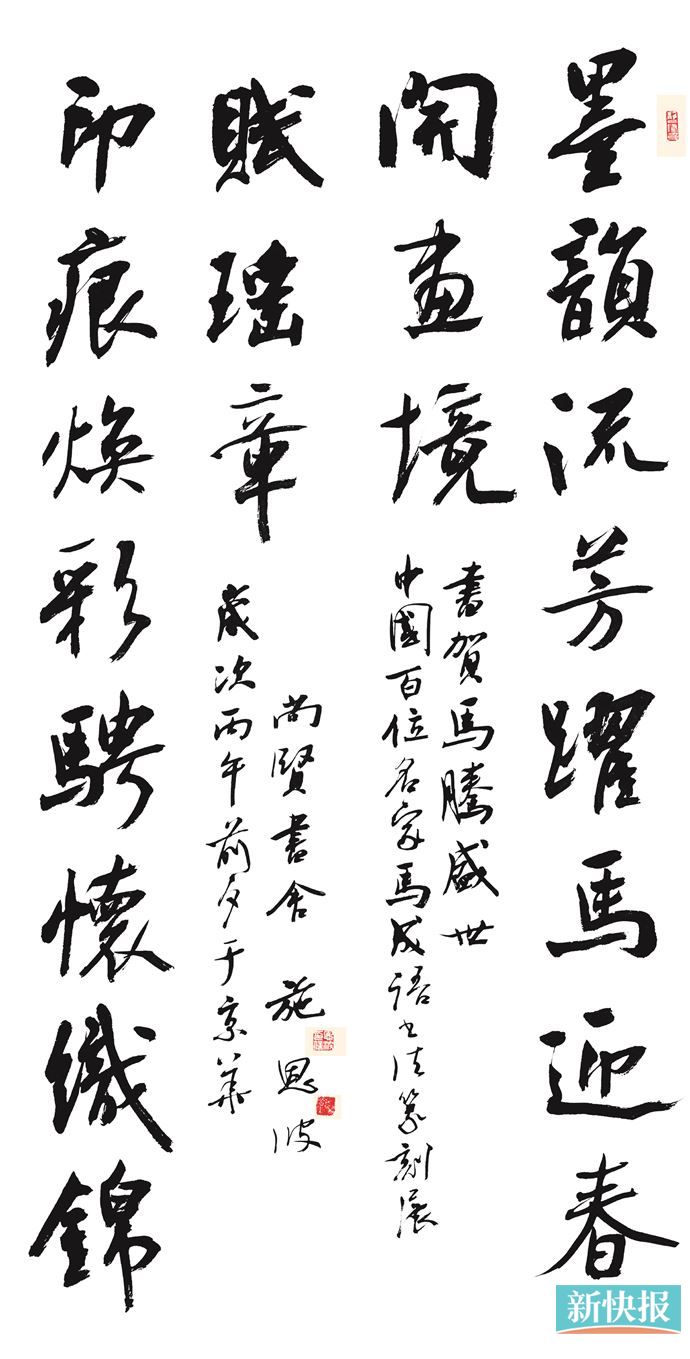 墨韻流芳躍馬迎春
開畫境
書賀馬騰盛世
中國百位名家馬成語書法篆刻展
印痕煥彩騁懷織錦
賦瑤章
歲次丙午前夕于京華
尚賢書舍 施恩波
新快报